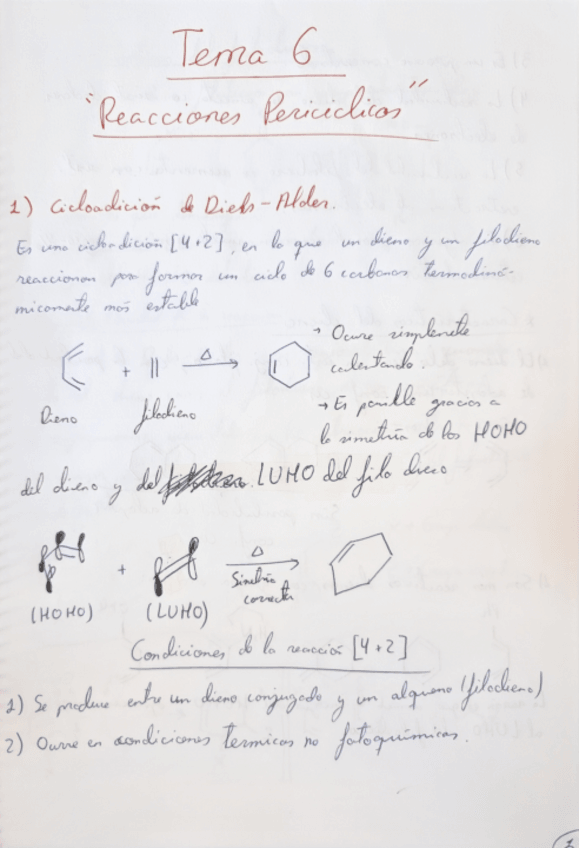 Tema 6
"Reacciones Periciclicas"
1) Cicloadición de Diels-Alder.
Es una cicloadición [4+2], en la que un dieno y un filodieno
reaccionan para formar un ciclo de 6 carbonos termodiná-
micamente más estable
→ Ocurre simplemente
calentando.
+ Δ
Dieno filodieno
→ Es posible gracias a
la simetría de los HOMO
del dieno y del LUMO del filo dieno
+ Δ
Simetría
correcta
(HOMO) (LUMO)
Condiciones de la reacción [4+2]
1) Se produce entre un dieno conjugado y un alqueno (filodieno)
2) Ocurre en condiciones termicas no fotoquímicas.
1